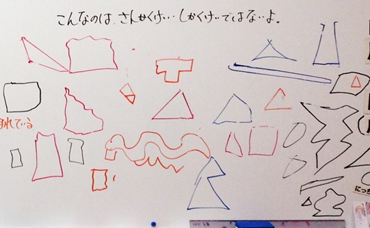 こんなのは、さんかくけい・・・しかくけいではないよ。
れている